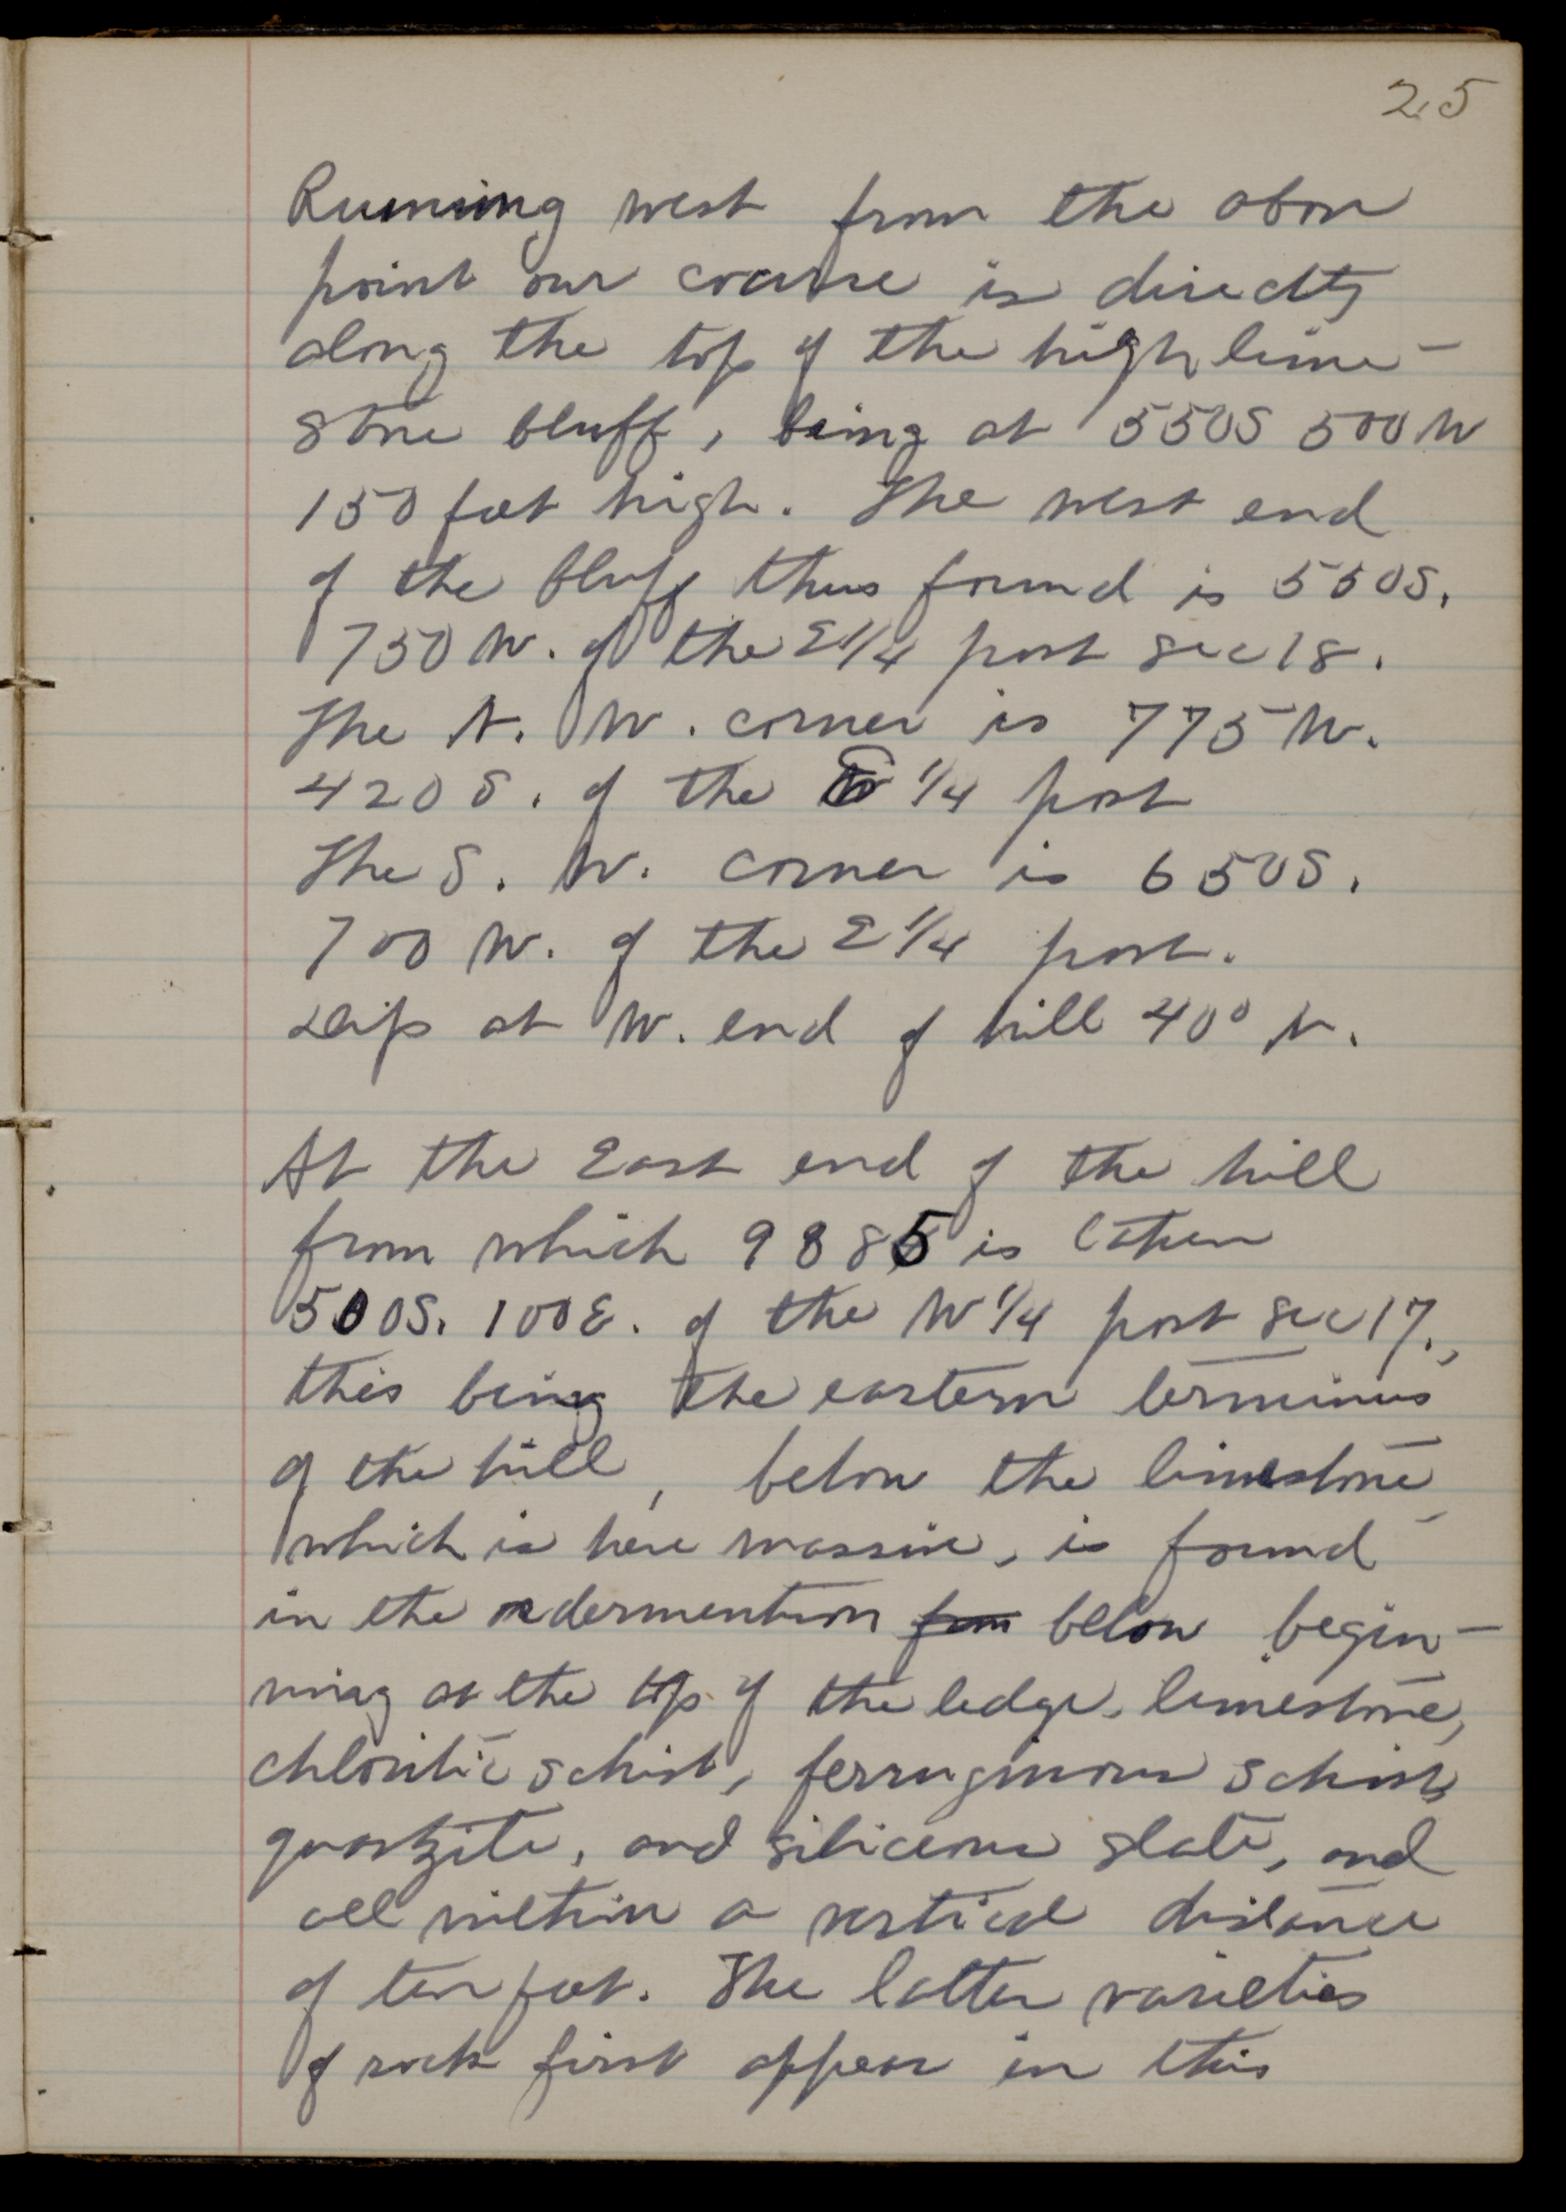 25
Running west from the above
point our course is directly
along the top of the high lime-
stone bluff, being at 550S 500 W
150 feet high. The west end
of the bluff thus found is 550S.
750 W. of the E 1/4 post sec 18.
The N. W. corner is 775 W.
420 S. of the 1/4 post
The S. W. corner is 650S.
700 W. of the E 1/4 post.
Dip at W. end of hill 40° N.
At the East end of the hill
from which 9885 is taken
500S. 100E. of the W 1/4 post sec 17.,
this being the eastern terminus
of the hill, below the limestone
which is here massive, is found
in the below begin-
ning at the top of the ledge, limestone,
chloritic schist, ferruginous schist,
quartzite, and siliceous slate, and
all within a vertical distance
of ten feet. The latter varieties
of rock first appear in this